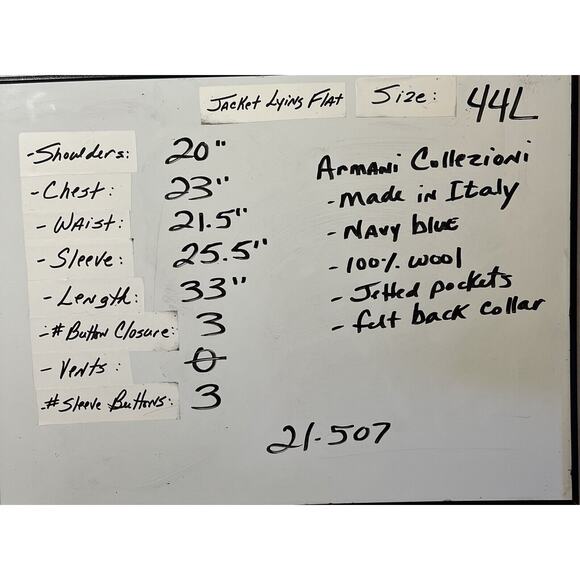 Jacket Lying Flat Size: 44L
- Shoulders: 20"
- Chest: 23"
- Waist: 21.5"
- Sleeve: 25.5"
- Length: 33"
- # Button Closure: 3
- Vents: 0
- # Sleeve Buttons: 3
Armani Collezioni
- made in Italy
- Navy blue
- 100% wool
- Jetted pockets
- felt back collar
21-507